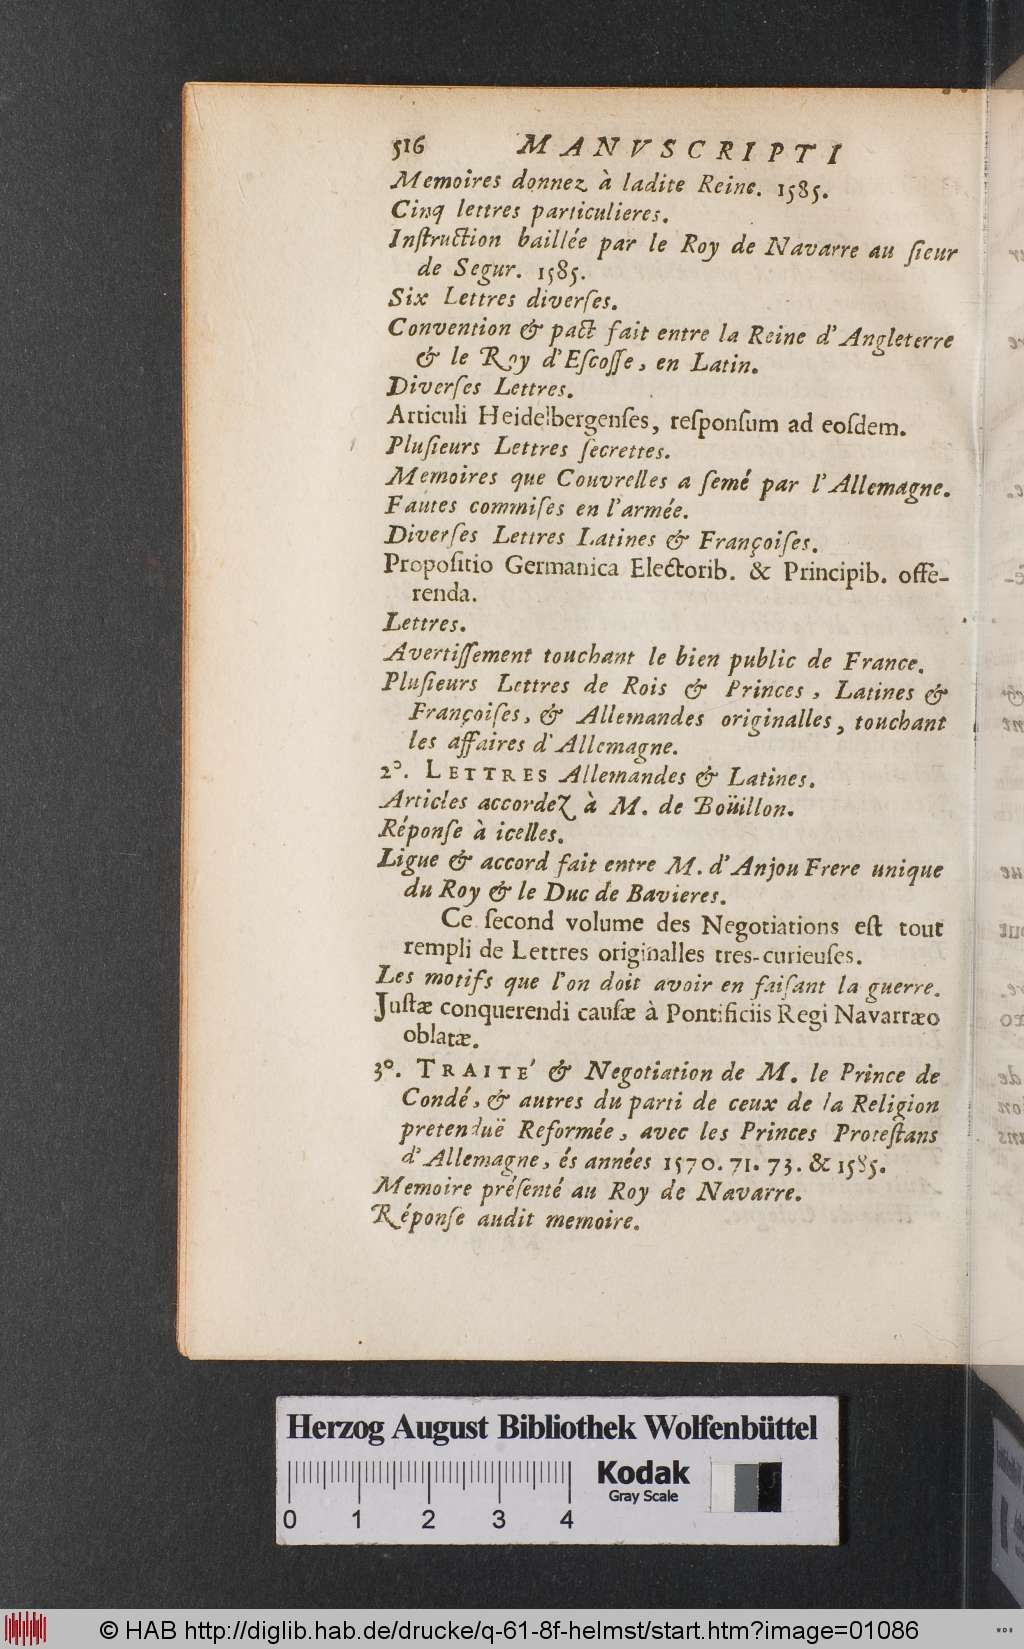 516 MANVSCRIPTI
Memoires donnez à ladite Reine. 1585.
Cinq lettres particulieres.
Inſtruction baillée par le Roy de Navarre au ſieur
de Segur. 1585.
Six Lettres diverſes.
Convention & pact fait entre la Reine d'Angleterre
& le Roy d'Eſcoſſe, en Latin.
Diverſes Lettres.
Articuli Heidelbergenſes, reſponſum ad eoſdem.
Pluſieurs Lettres ſecrettes.
Memoires que Couvrelles a ſemé par l'Allemagne.
Fautes commiſes en l'armée.
Diverſes Lettres Latines & Françoiſes.
Propoſitio Germanica Electorib. & Principib. offe-
renda.
Lettres.
Avertiſſement touchant le bien public de France.
Pluſieurs Lettres de Rois & Princes, Latines &
Françoiſes, & Allemandes originalles, touchant
les affaires d'Allemagne.
2°. LETTRES Allemandes & Latines.
Articles accordez à M. de Boüillon.
Réponſe à icelles.
Ligue & accord fait entre M. d'Anjou Frere unique
du Roy & le Duc de Bavieres.
Ce ſecond volume des Negotiations eſt tout
rempli de Lettres originalles tres-curieuſes.
Les motifs que l'on doit avoir en faiſant la guerre.
Juſtæ conquerendi cauſæ à Pontificiis Regi Navarræo
oblatæ.
3°. TRAITE' & Negotiation de M. le Prince de
Condé, & autres du parti de ceux de la Religion
pretenduë Reformée, avec les Princes Proteſtans
d'Allemagne, és années 1570. 71. 73. & 1585.
Memoire préſenté au Roy de Navarre.
Réponſe audit memoire.
Herzog August Bibliothek Wolfenbüttel
Kodak
Gray Scale
0 1 2 3 4
© HAB http://diglib.hab.de/drucke/q-61-8f-helmst/start.htm?image=01086